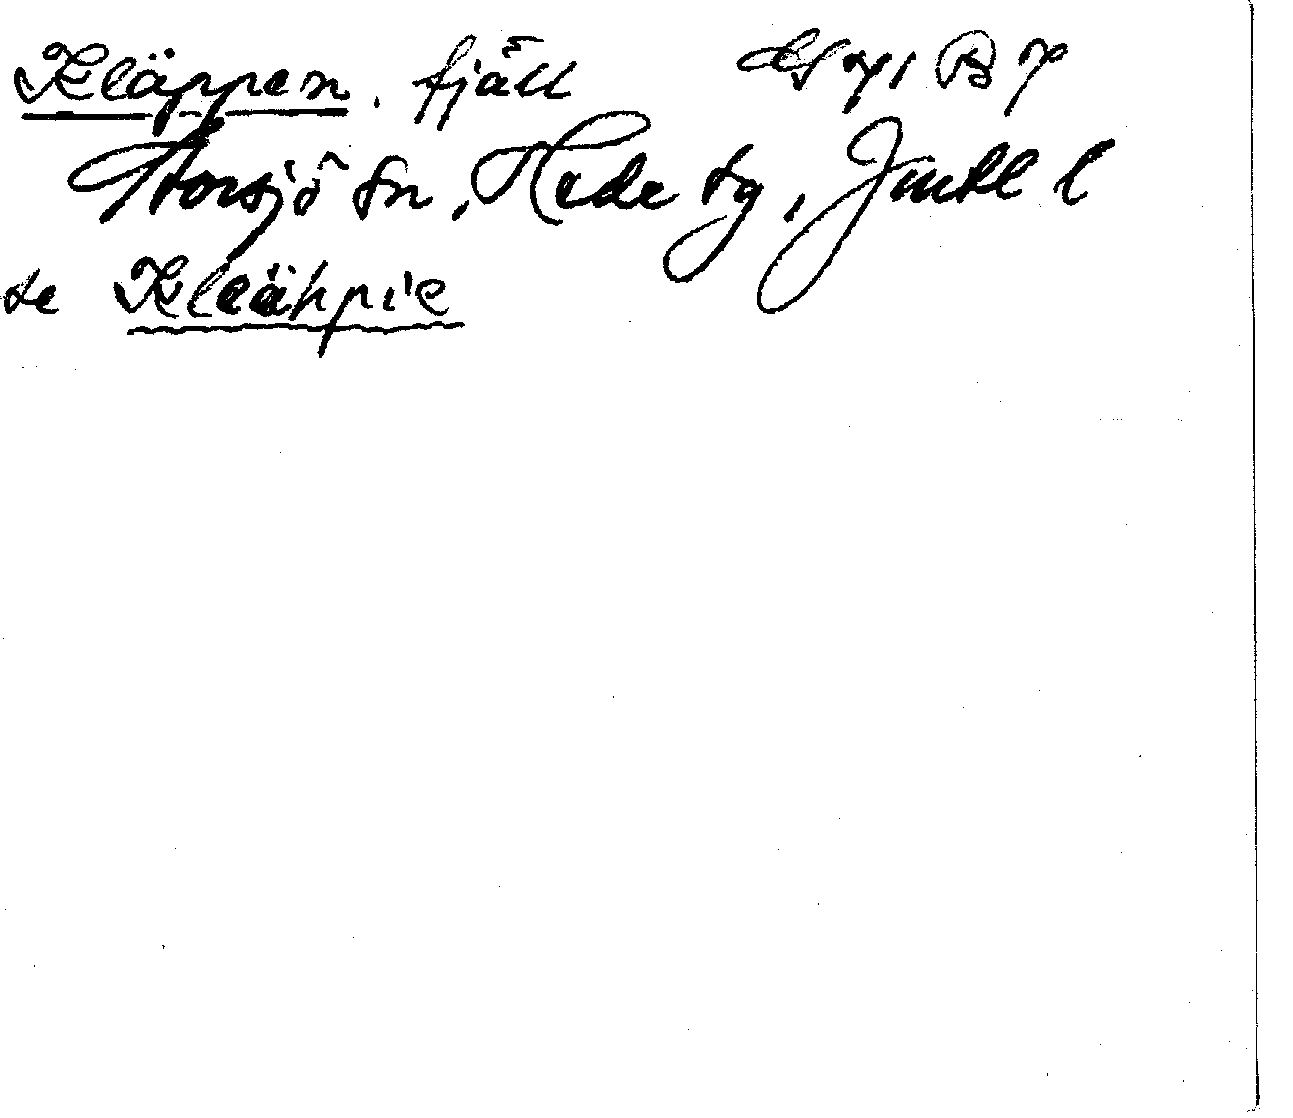 Kläppen, fjäll
Storsjö sn, Hede tg, Jmtl l
se Kleähpie